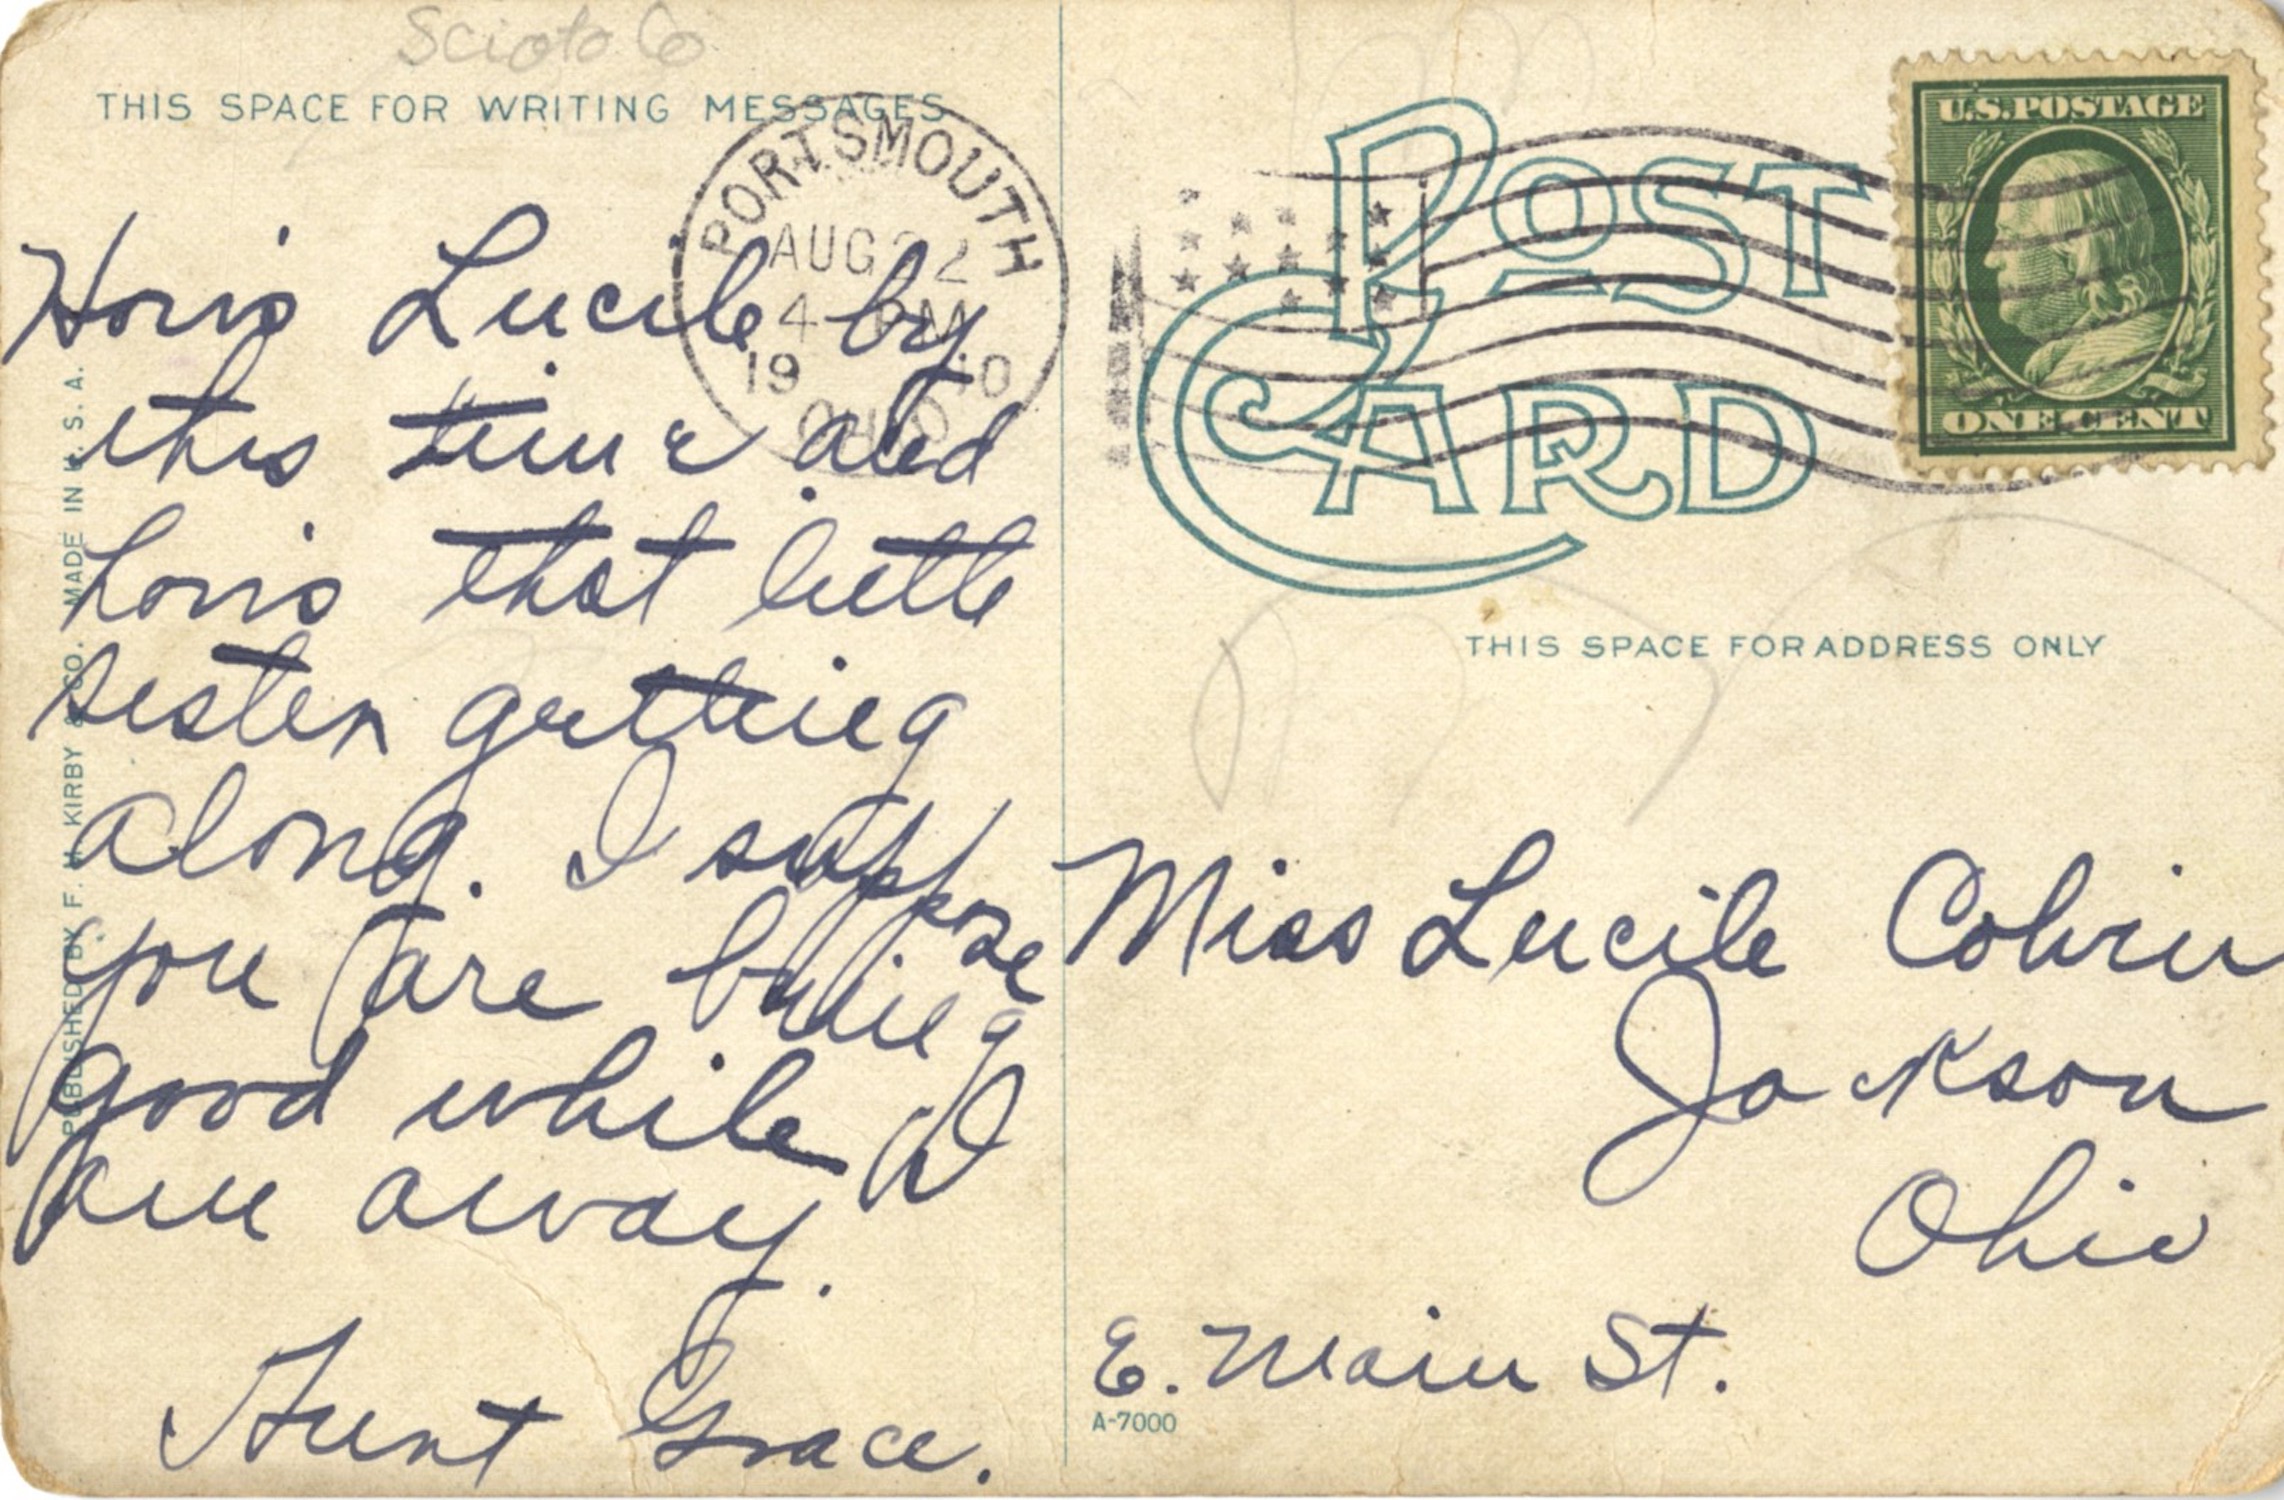 Scioto Co
THIS SPACE FOR WRITING MESSAGES
PORTSMOUTH
AUG 22
4 PM
19 10
OHIO
How's Lucile by
this time and
how's that little
sister getting
along. I suppose
you are being
good while I
am away.
Aunt Grace.
PUBLISHED BY F. H. KIRBY & CO. MADE IN U. S. A.
POST CARD
U.S. POSTAGE
ONE CENT
THIS SPACE FOR ADDRESS ONLY
Miss Lucile Colvin
Jackson
Ohio
E. Main St.
A-7000